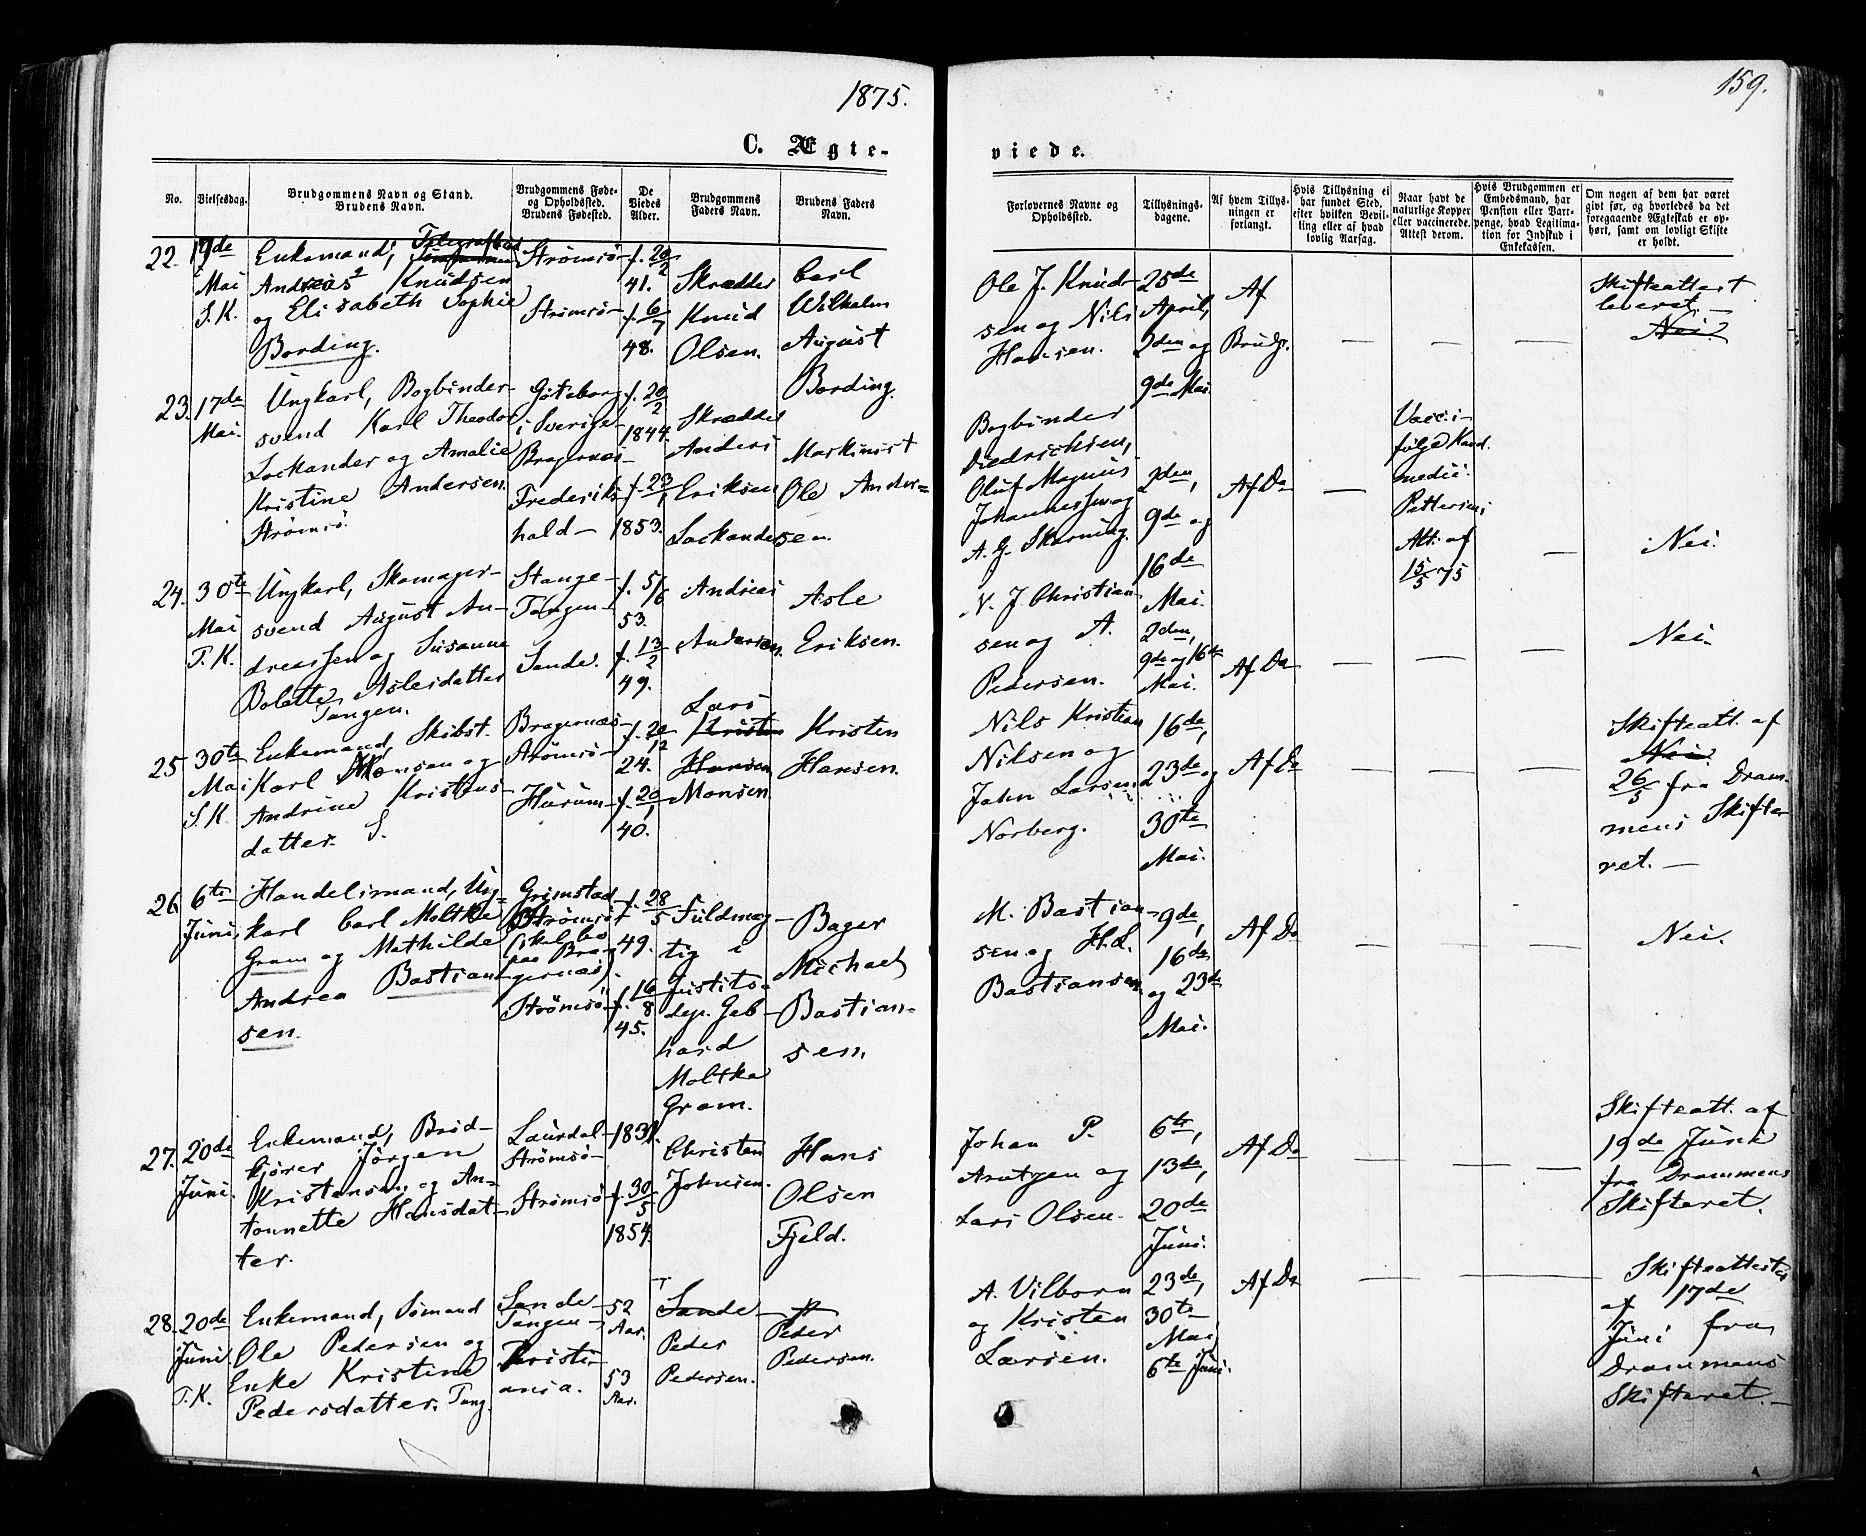 1875.
159.
C. Ægte-
viede.
No.
Vielsesdag.
Brudgommens Navn og Stand.
Brudens Navn.
Brudgommens Føde-
og Opholdsted.
Brudens Fødested.
De
Viedes
Alder.
Brudgommens
Faders Navn.
Brudens Faders
Navn.
Forlovernes Navne og
Opholdsted.
Tillysnings-
dagene.
Af hvem Tillys-
ningen er
forlangt.
Hvis Tillysning ei
har fundet Sted,
efter hvilken Bevil-
ling eller af hvad
lovlig Aarsag.
Naar havt de
naturlige Kopper
eller vaccinerede.
Attest derom.
Hvis Brudgommen er
Embedsmand, har
Pension eller Vart-
penge, hvad Legitima-
tion for Indskud i
Enkekassen.
Om nogen af dem har været
givt før, og hvorledes da det
foregaaende Ægteskab er op-
hørt, samt om lovligt Skifte
er holdt.
22.
19de
Mai
S.K.
Enkemand,
Andreas Knudsen
og Elisabeth Sophie
Bording.
Strømsø
Strømsø
f. 20/2
41.
f. 6/7
48.
Skrædder
Knud
Olsen.
Carl
Wilhelm
August
Bording.
Ole J. Knud-
sen og Nils
Hansen.
25de
April,
2den og
9de Mai
Af
Brudg.
—
—
—
Skifteattest
leveret. —
Nei.
23.
17de
Mai.
Ungkarl, Bogbinder-
svend Karl Theodor
Lockander og Amalie
Kristine Andersen.
Strømsø.
Göteborg
i Sverige
Bragernæs
Frederiks-
hald —
f. 20/2
1844.
f. 23/1
1853.
Skrædder
Anders
Eriksen
Lockander
Maskinist
Ole Ander=
sen.
Bogbinder
Diedrichsen,
Oluf Magnus
Johannessen og
A. G. Skarning.
2den,
9de og
16de
Mai.
Af Do
—
Vacc. i-
følge Kand.
medic.
Pettersens
Att. af
15/5 75
—
Nei.
24.
30te
Mai
T.K.
Ungkarl, Skomager-
svend August An-
dreassen og Susanne
Bolette Aslesdatter
Tangen.
Stange-
Tangen-
Sande.
f. 5/6
53.
f. 13/2
49.
Andreas
Andersen.
Asle
Eriksen.
N. J. Christian-
sen og A.
Pedersen.
2den,
9de og 16de
Mai.
Af Do
—
—
—
Nei.
25.
30te
Mai
S.K.
Enkemand, Skibst.
Karl Monsen og
Andrine Kristens-
datter. S.
Bragernæs
Strømsø
Hurum
f. 20/12
24.
f. 20/1
40.
Lars
Kristen
Hansen
Monsen
Kristen
Hansen.
Nils Kristian
Nilsen og
John Larsen
Norberg.
16de,
23de og
30te
Mai.
Af Do
—
—
—
Skifteatt. af
Nei.
26/5 fra Dram-
mens Skifte-
ret. —
26.
6te
Juni,
Handelsmand, Ung-
karl Carl Moltke
Gram og Mathilde
Andrea Bastian-
sen.
Grimstad
Strømsø
(skal bo
paa Bra-
gernæs).
Strømsø
f. 28/5
49.
f. 16/8
45.
Fuldmæg-
tig i
Justits-
dep. Geb-
hard
Moltke
Gram.
Bager
Michael
Bastian-
sen.
M. Bastian-
sen og H. L.
Bastiansen.
9de,
16de
og 23de
Mai.
Af Do
—
—
—
Nei.
27.
20de
Juni.
Enkemand, Brød-
kjører Jørgen
Kristensen og An-
tonnette Hansdat-
ter.
Laurdal-
Strømsø-
Strømsø
1831.
f. 30/5
1854.
Christen
Johnsen.
Hans
Olsen
Fjeld.
Johan P.
Arntzen og
Lars Olsen.
6te,
13de,
20de
Juni.
Af Do
—
—
—
Skifteatt. af
19de Juni
fra Drammens
Skifteret.
28.
20de
Juni
T.K.
Enkemand, Sømand
Ole Pedersen og
Enke Kristine
Pedersdatter. Tang.
Sande
Tangen-
Christi-
ania.
52
Aar.
53
Aar.
Sande
Peder
Pedersen.
Peder
Pedersen.
A. Vilborn
og Kristen
Larsen.
23de,
30te
Mai,
6te Juni.
Af Do
—
—
—
Skifteattester
af 17de
Juni fra
Drammens
Skifteret. —